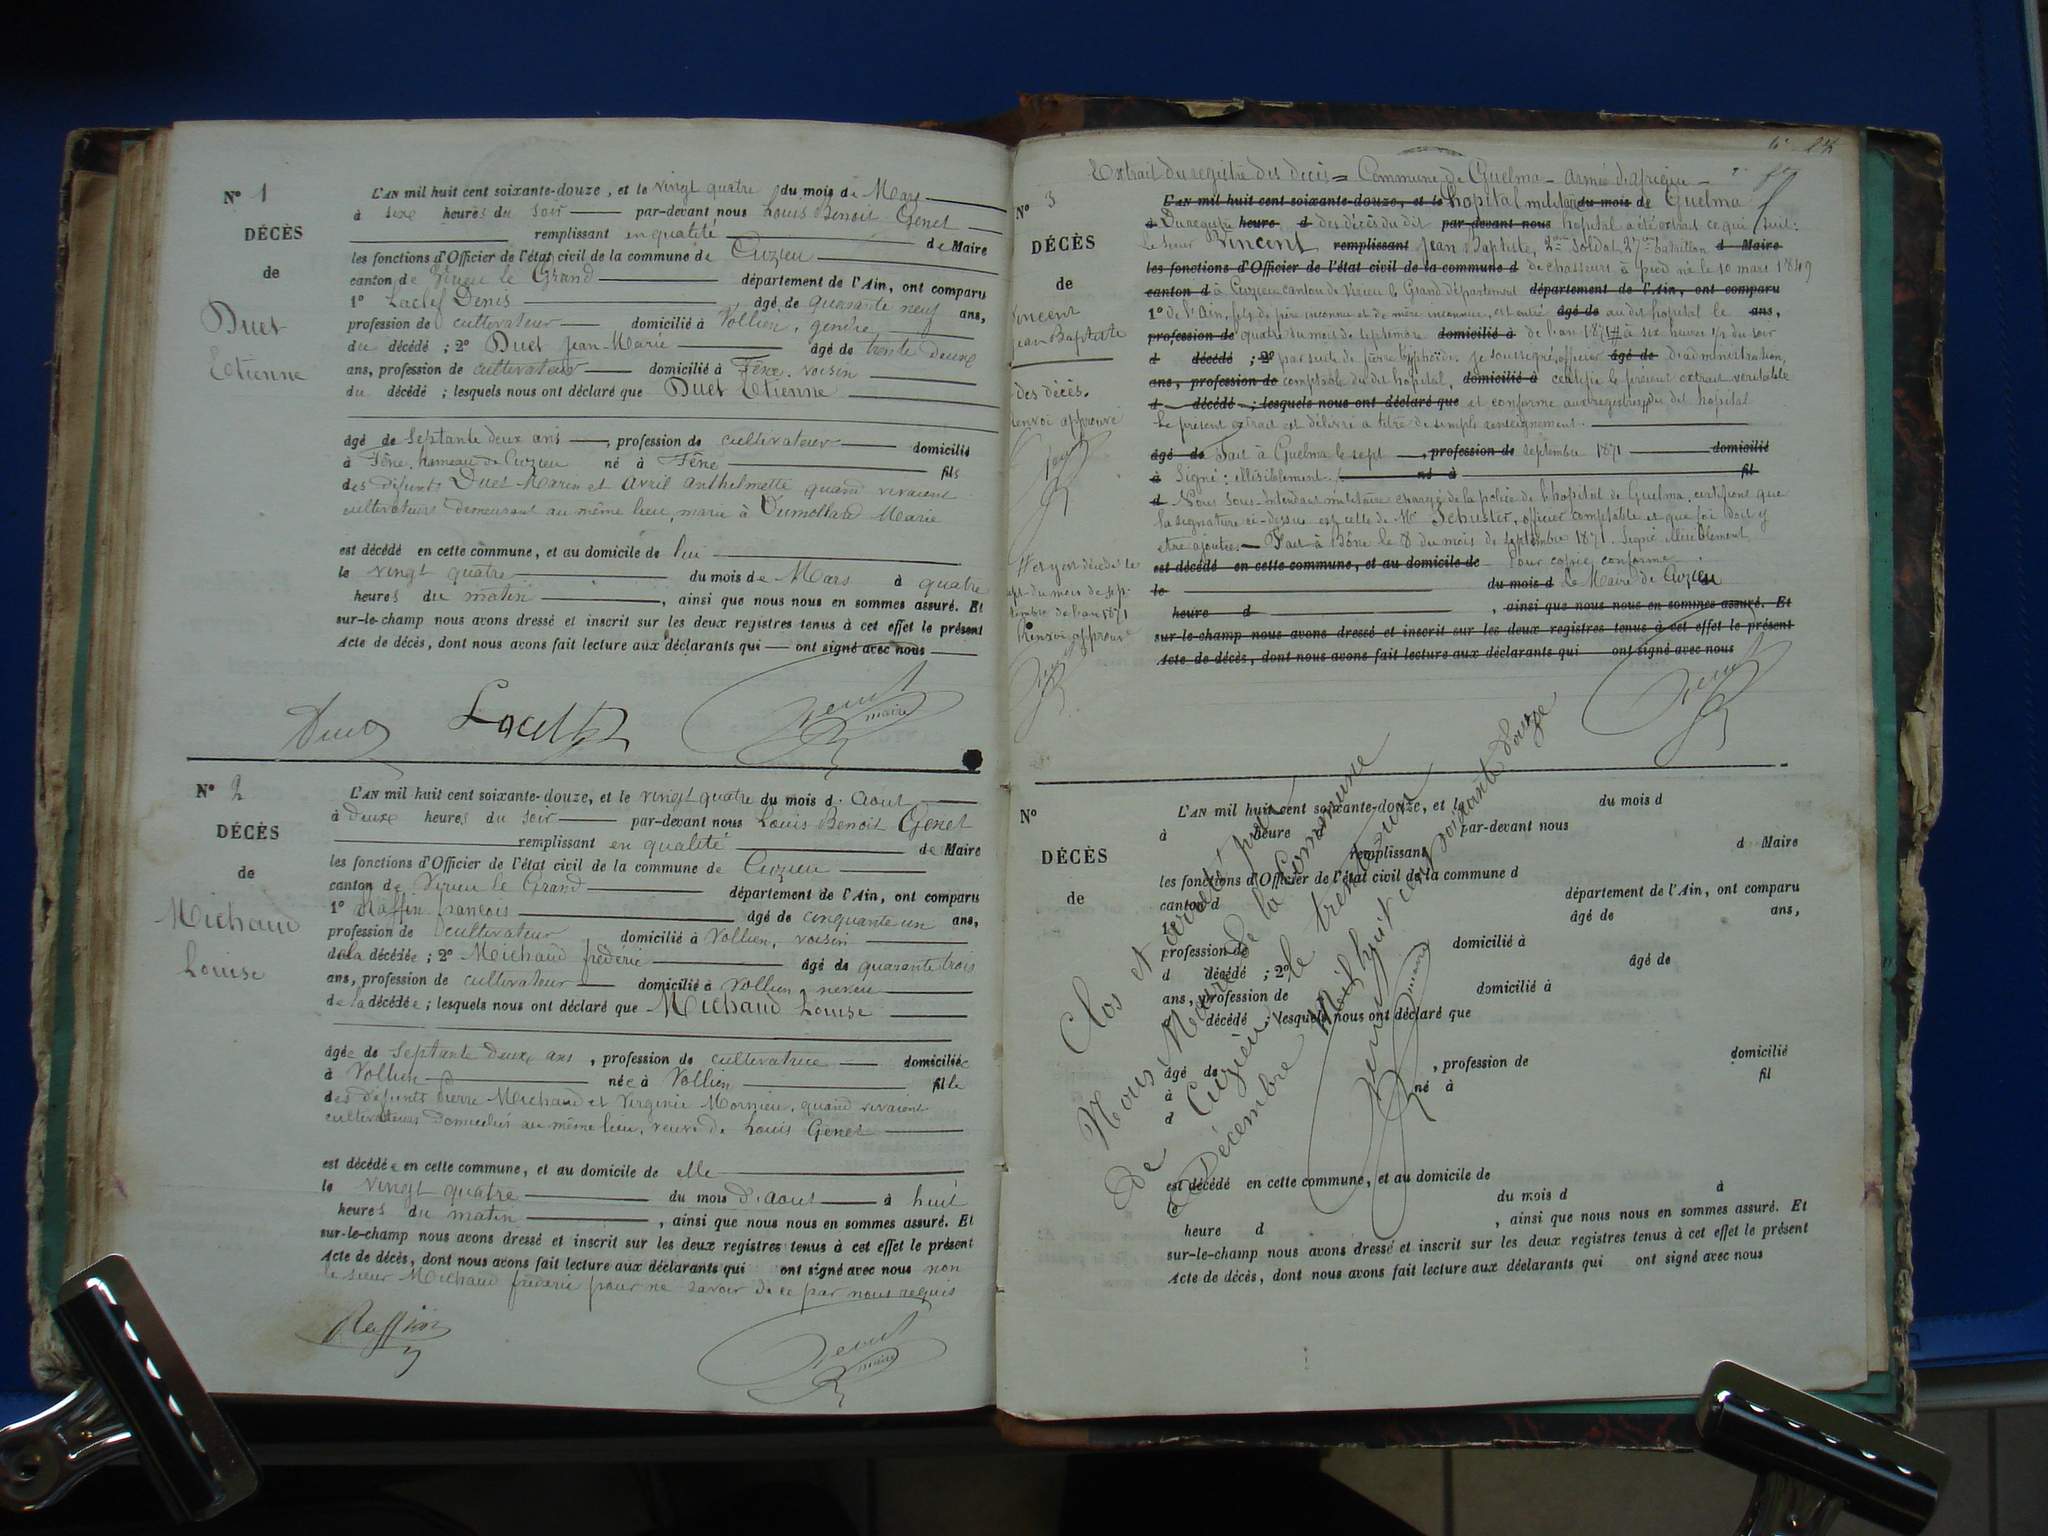 N° 1
DÉCÈS
de
Duet
Etienne
L'AN mil huit cent soixante-douze, et le vingt quatre du mois de Mars
à six heures du soir par-devant nous Louis Benoit Genet
remplissant en qualité de Maire
les fonctions d'Officier de l'état civil de la commune de Cuzieu
canton de Virieu le Grand département de l'Ain, ont comparu
1° Laclef Denis âgé de quarante neuf ans,
profession de cultivateur domicilié à Vollien, gendre
du décédé ; 2° Duet Jean-Marie âgé de trente deux
ans, profession de cultivateur domicilié à Fêne, voisin
du décédé ; lesquels nous ont déclaré que Duet Etienne
âgé de septante deux ans, profession de cultivateur domicilié
à Fêne, hameau de Cuzieu né à Fêne fils
des défunts Duet Marin et Avril Anthelmette quand vivaient
cultivateurs demeurant au même lieu, marié à Dumollard Marie
est décédé en cette commune, et au domicile de lui
le vingt quatre du mois de Mars à quatre
heures du matin, ainsi que nous nous en sommes assuré. Et
sur-le-champ nous avons dressé et inscrit sur les deux registres tenus à cet effet le présent
Acte de décès, dont nous avons fait lecture aux déclarants qui ont signé avec nous
Duet Laclef Genet maire
N° 2
DÉCÈS
de
Michaud
Louise
L'AN mil huit cent soixante-douze, et le vingt quatre du mois d'aout
à deux heures du soir par-devant nous Louis Benoit Genet
remplissant en qualité de Maire
les fonctions d'Officier de l'état civil de la commune de Cuzieu
canton de Virieu le Grand département de l'Ain, ont comparu
1° Raffin françois âgé de cinquante un ans,
profession de cultivateur domicilié à Vollien, voisin
de la décédée ; 2° Michaud frédéric âgé de quarante trois
ans, profession de cultivateur domicilié à Vollien neveu
de la décédée ; lesquels nous ont déclaré que Michaud Louise
âgée de septante deux ans, profession de cultivatrice domiciliée
à Vollien née à Vollien fille
des défunts Pierre Michaud et Virginie Mornieu, quand vivaient
cultivateurs domiciliés au même lieu, veuve de Louis Genet
est décédée en cette commune, et au domicile de elle
le vingt quatre du mois d'aout à huit
heures du matin, ainsi que nous nous en sommes assuré. Et
sur-le-champ nous avons dressé et inscrit sur les deux registres tenus à cet effet le présent
Acte de décès, dont nous avons fait lecture aux déclarants qui ont signé avec nous non
le sieur Michaud frédéric pour ne savoir de ce par nous requis
Raffin Genet maire
Extrait du registre des décès = Commune de Guelma - Armée d'afrique -
N° 3
DÉCÈS
de
Vincent
Jean Baptiste
des décès.
renvoi approuvé
Genet
L'AN mil huit cent soixante-douze, et le hôpital militaire du mois de de Guelma
à Du registre heure d des décès du dit par-devant nous hopital a été extrait ce qui suit :
Le sieur Vincent remplissant Jean Baptiste, 2ème Soldat 27ème Bataillon d Maire
les fonctions d'Officier de l'état civil de la commune d de chasseurs à pied né le 10 mars 1849
canton d à Cuzieu canton de Virieu le Grand département département de l'Ain, ont comparu
1° de l'Ain, fils de père inconnu et de mère inconnue, est entré âgé de au dit hopital le ans,
profession de quatre du mois de septembre domicilié à de l'an 1871 # à six heures 1/2 du soir
d décédé ; 2° par suite de fièvre typhoïde. je soussigné, officier âgé de d'administration,
ans, profession de comptable du dit hopital, domicilié à certifie le présent extrait véritable
d décédé ; lesquels nous ont déclaré que et conforme aux registres du dit hopital
Le présent extrait est délivré à titre de simple renseignement.
âgé de Fait à Guelma le sept, profession de septembre 1871 domicilié
à Signé : illisiblement. né à fil
d Nous Sous-Intendant militaire chargé de la police de l'hopital de Guelma, certifions que
la signature ci-dessus est celle de Mr Schuster, officier comptable et que foi doit y
être ajoutée — Fait à Bône le 8 du mois de septembre 1871. Signé illisiblement
est décédé en cette commune, et au domicile de Pour copie conforme
le du mois d Le Maire de Cuzieu
heure d , ainsi que nous nous en sommes assuré. Et
sur-le-champ nous avons dressé et inscrit sur les deux registres tenus à cet effet le présent
Acte de décès, dont nous avons fait lecture aux déclarants qui ont signé avec nous
# est décédé le
sept du mois de sep-
tembre de l'an 1871
Renvoi approuvé
Genet
Genet
N°
DÉCÈS
de
L'AN mil huit cent soixante-douze, et le du mois d
à heure d par-devant nous
remplissant d Maire
les fonctions d'Officier de l'état civil de la commune d
canton d département de l'Ain, ont comparu
1° âgé de ans,
profession de domicilié à
d décédé ; 2° âgé de
ans, profession de domicilié à
d décédé ; lesquels nous ont déclaré que
âgé de , profession de domicilié
à né à fil
d
est décédé en cette commune, et au domicile de
le du mois d à
heure d , ainsi que nous nous en sommes assuré. Et
sur-le-champ nous avons dressé et inscrit sur les deux registres tenus à cet effet le présent
Acte de décès, dont nous avons fait lecture aux déclarants qui ont signé avec nous
Clos et arrêté par
Nous Maire de la Commune
de Cuzieu le trente un
Décembre Mil huit cent soixante douze
Genet maire